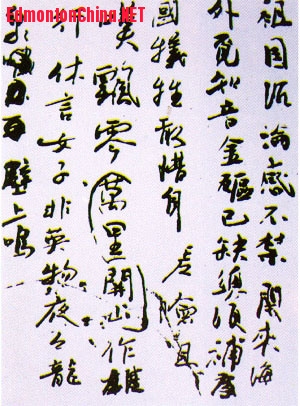 EdmontonChina.NET
祖国沉淪感不禁 閑來海
外覓知音金甌已缺總須補為
國犧牲敢惜身 嗟險阻
嘆飄零萬里關山作雄
行 休言女子非英物夜夜龍
泉壁上鳴